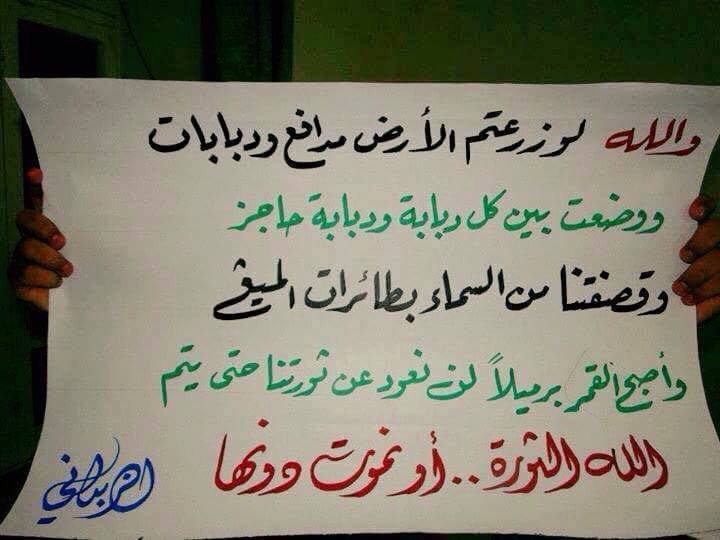 والله لو زرعتم الأرض مدافع ودبابات
ووضعت بين كل دبابة ودبابة حاجز
وقصفتنا من السماء بطائرات الميغ
وأصبح القمر برميلاً لن نعود عن ثورتنا حتى يتم
الله الثورة .. أو نموت دونها